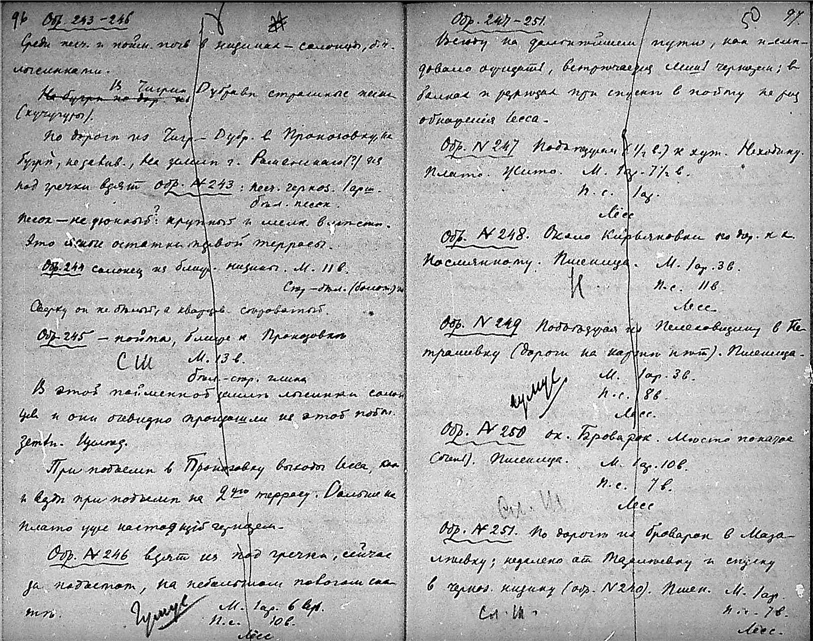 96 Обр. 243–246
Среди песч. и пойм. почв в низинах – солонцы, бл.
лысинками.
На бугри по дор. из В Чигрин Дубрави страшные пески
(кучугуры).
По дороги из Чигр–Дубр. в Пронозовку, на
бугри, недалик., на земли г.
под гречки взят Обр. № 243: песч. чернoз. 1 арш.
бѣл. песок.
Песок – не дюнный? крупный и мелк.
Это ясные остатки первой террасы.
Обр. 244 солонец из ближ. низины. М. 11 в.
Сверху он не бѣлый, а
Обр. 245 – пойма, ближе к Пронозовке
СШ М. 13 в.
бѣл.-сѣр. глина
В этой пойменной земли лысинки солон
цев и они очевидно произошли из этой пойм.
земли.
При подъеми в Пронозовку выходы лесса, как
и везди при подъеми на 2ую террасу. Дальше на
плато уже настоящий чернозем.
Обр. № 246 взят из под гречки, сейчас
за подъемом, на небольшом пологом ска
ти.
Гумус М. 1 ар. 6 вер.
П. с. 10 в.
Лесс
Обр. 247–251. 50 97.
Всюду на дальнейшем пути, как и сли-
довало ожидать, встричается лишь чернозем; в
балках и узвозах при спуски в пойму не раз
обнажения лесса.
Обр. № 247 Подъезжая (1/2 в.) к хут. Неходину.
Плато. Жито. М. 1 ар. 7 1/2 в.
П. с. 1 ар.
Лёсс
Обр. № 248. Около Кирьяновки по дор. к х.
Пшеница. М. 1 ар. 3 в.
П. с. 11 в.
Лесс
Обр. № 249 Подъезжая из Пелеховщину в Пе-
трашевку (дороги на карти нѣт). Пшеница.
М. 1 ар. 3 в.
гумус П. с. 8 в.
Лесс.
Обр. № 250 ок. Броварок. Мѣсто покатое
(очень). Пшеница. М. 1 ар. 10 в.
П. с. 7 в.
Сл. Ш. Лесс
Обр. № 251. По дороги из Броварок в Маза-
лѣевку; недалеко от и спуску
в чернoз. низину (обр. № 240). Пшен. М. 1 ар.
Сл. Ш. П. с. 7 в.
Лесс.